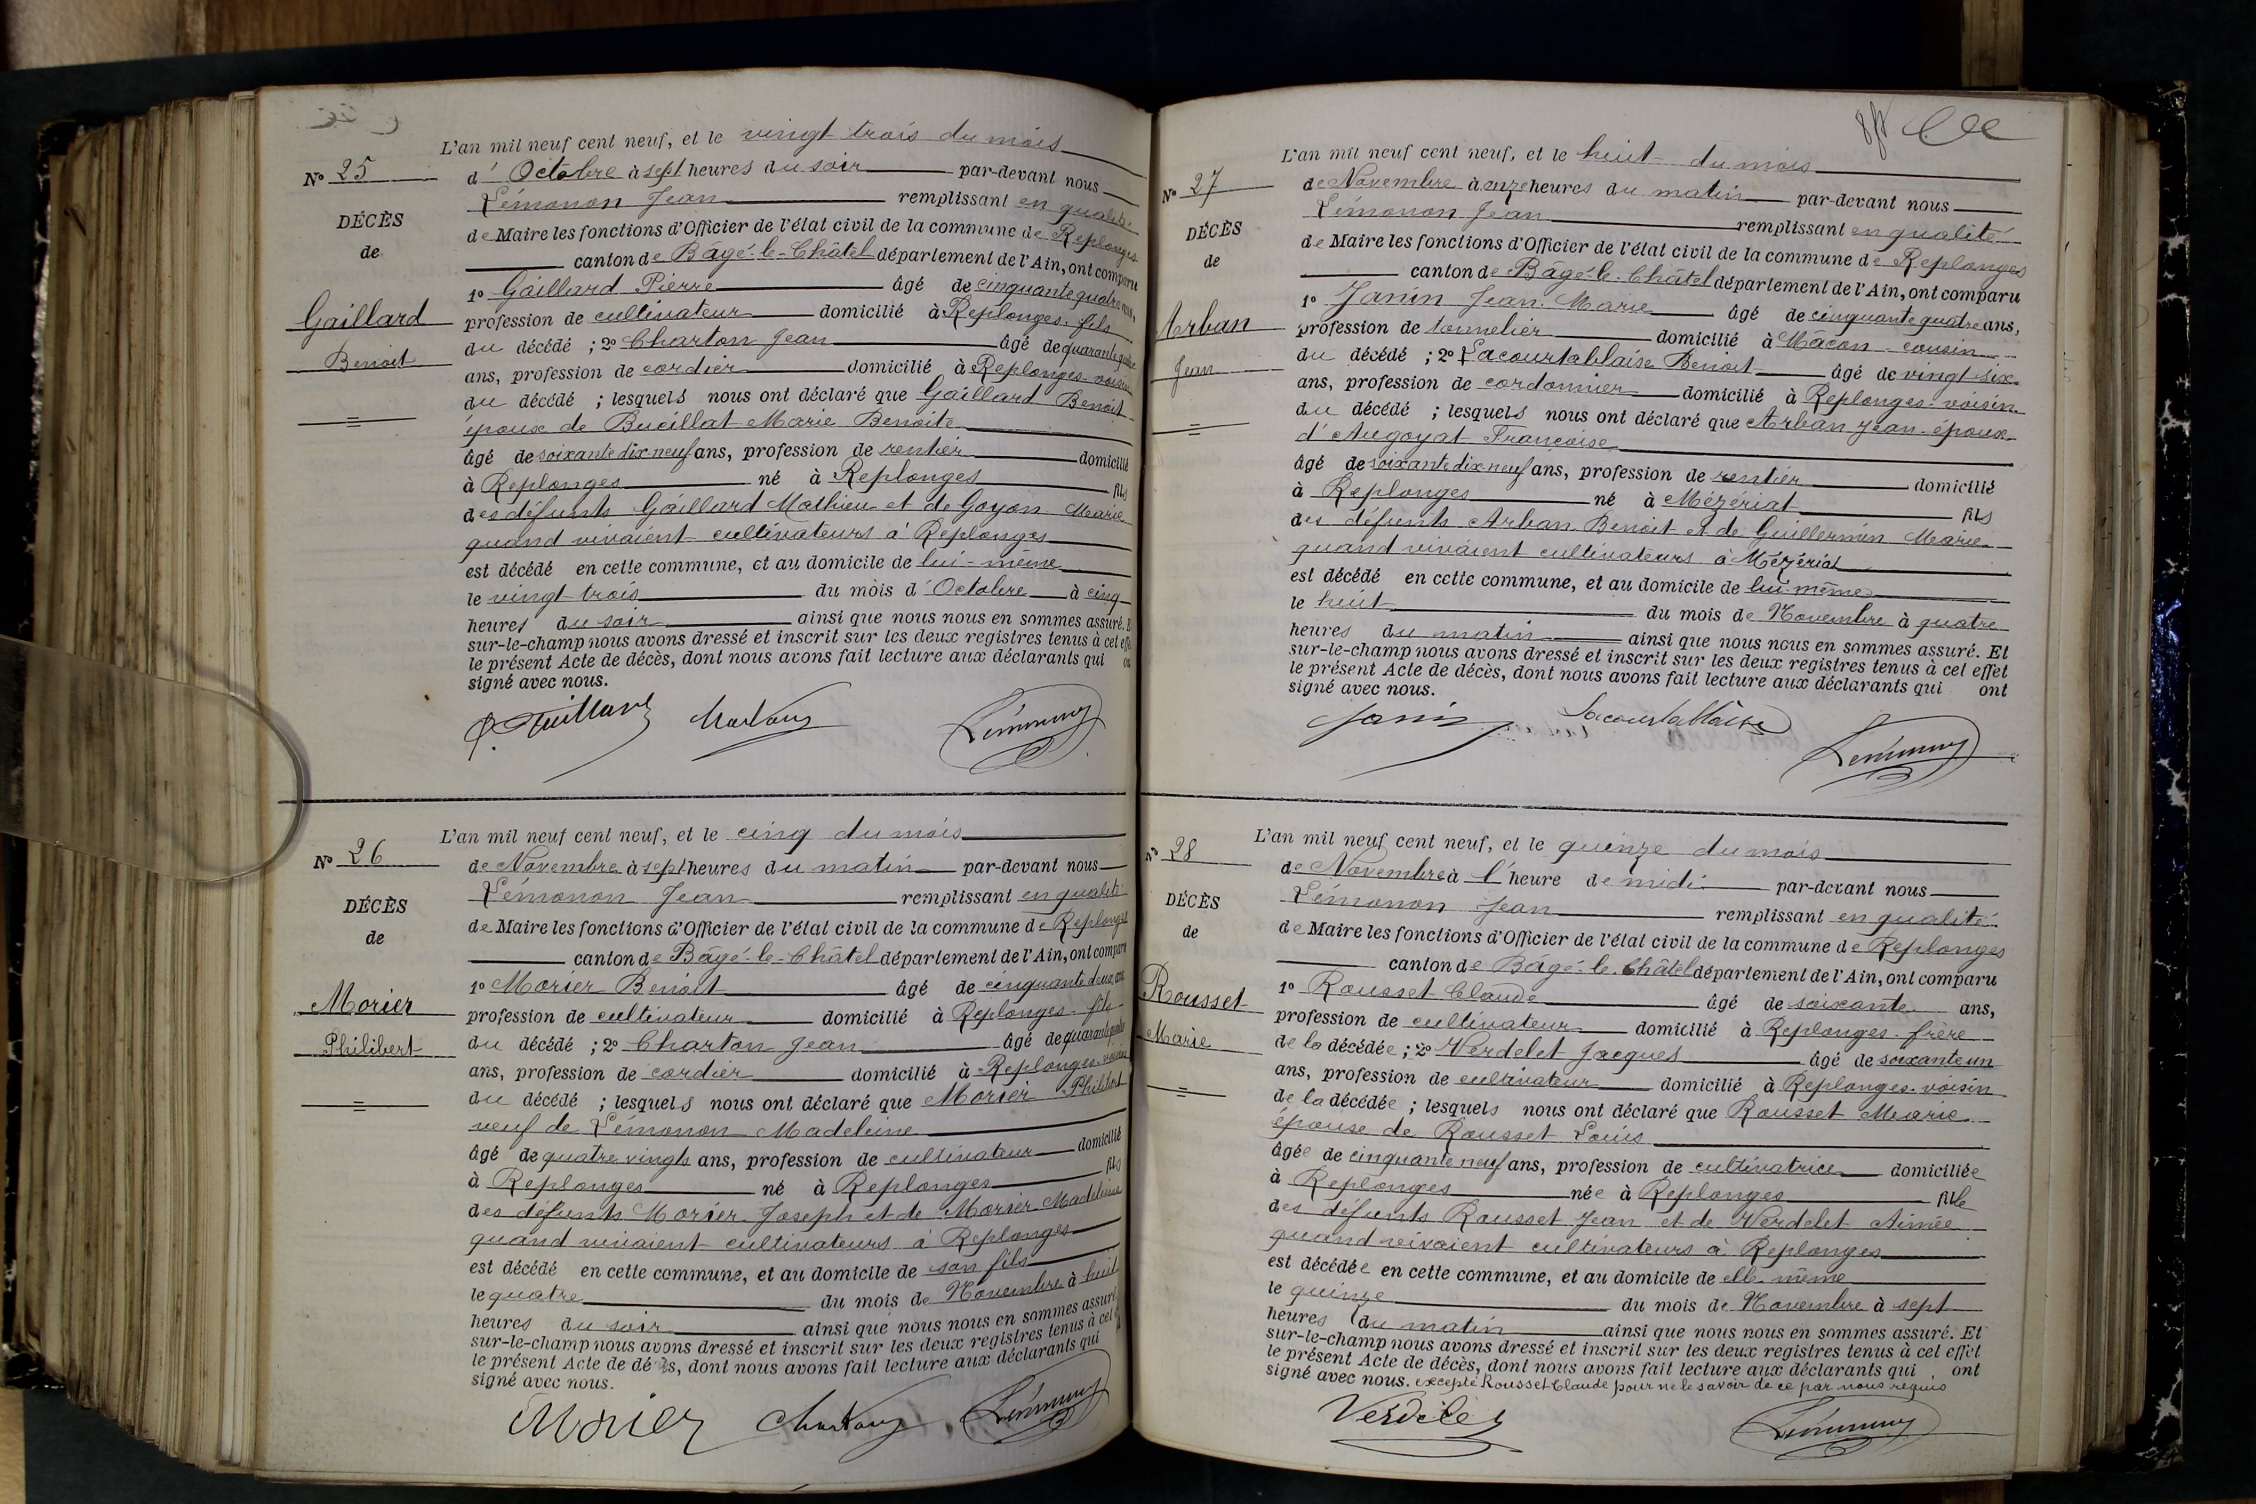 N° 25
DÉCÈS
de
Gaillard
Benoit
L'an mil neuf cent neuf, et le vingt trois du mois
d'Octobre à sept heures du soir par-devant nous
Lémonon Jean remplissant en qualité
de Maire les fonctions d'Officier de l'état civil de la commune de Replonges
canton de Bâgé-le-Châtel département de l'Ain, ont comparu
1° Gaillard Pierre âgé de cinquante quatre ans,
profession de cultivateur domicilié à Replonges fils
du décédé ; 2° Charton Jean âgé de quarante
ans, profession de cordier domicilié à Replonges voisin
du décédé ; lesquels nous ont déclaré que Gaillard Benoit
époux de Bucillat Marie Benoite
âgé de soixante dix neuf ans, profession de rentier domicilié
à Replonges né à Replonges fils
des défunts Gaillard Mathieu et de Goyon Marie
quand vivaient cultivateurs à Replonges
est décédé en cette commune, et au domicile de lui-même
le vingt trois du mois d'Octobre à cinq
heures du soir ainsi que nous nous en sommes assuré. E
sur-le-champ nous avons dressé et inscrit sur les deux registres tenus à cet effe
le présent Acte de décès, dont nous avons fait lecture aux déclarants qui on
signé avec nous.
N° 26
DÉCÈS
de
Morier
Philibert
L'an mil neuf cent neuf, et le cinq du mois
de Novembre à sept heures du matin par-devant nous
Lémonon Jean remplissant en qualité
de Maire les fonctions d'Officier de l'état civil de la commune de Replonges
canton de Bâgé-le-Châtel département de l'Ain, ont comparu
1° Morier Benoit âgé de cinquante deux ans
profession de cultivateur domicilié à Replonges fils
du décédé ; 2° Charton Jean âgé de quarante
ans, profession de cordier domicilié à Replonges voisin
du décédé ; lesquels nous ont déclaré que Morier Philibert
veuf de Lémonon Madeleine
âgé de quatre vingts ans, profession de cultivateur domicilié
à Replonges né à Replonges fils
des défunts Morier Joseph et de Morier Madeleine
quand vivaient cultivateurs à Replonges
est décédé en cette commune, et au domicile de son fils
le quatre du mois de Novembre à huit
heures du soir ainsi que nous nous en sommes assuré
sur-le-champ nous avons dressé et inscrit sur les deux registres tenus à cet
le présent Acte de décès, dont nous avons fait lecture aux déclarants qui
signé avec nous.
Morier Charton Lémonon
N° 27
DÉCÈS
de
Arban
Jean
L'an mil neuf cent neuf, et le huit du mois
de Novembre à onze heures du matin par-devant nous
Lémonon Jean remplissant en qualité
de Maire les fonctions d'Officier de l'état civil de la commune de Replonges
canton de Bâgé-le-Châtel département de l'Ain, ont comparu
1° Janin Jean-Marie âgé de cinquante quatre ans,
profession de tonnelier domicilié à Mâcon cousin
du décédé ; 2° Lacourtablaise Benoit âgé de vingt-six
ans, profession de cordonnier domicilié à Replonges voisin
du décédé ; lesquels nous ont déclaré que Arban Jean époux
d'Augoyat Françoise
âgé de soixante dix neuf ans, profession de rentier domicilié
à Replonges né à Mézériat fils
des défunts Arban Benoit et de Guillermin Marie
quand vivaient cultivateurs à Mézériat
est décédé en cette commune, et au domicile de lui-même
le huit du mois de Novembre à quatre
heures du matin ainsi que nous nous en sommes assuré. Et
sur-le-champ nous avons dressé et inscrit sur les deux registres tenus à cet effet
le présent Acte de décès, dont nous avons fait lecture aux déclarants qui ont
signé avec nous.
Janin Lacourtablaise Lémonon
N° 28
DÉCÈS
de
Rousset
Marie
L'an mil neuf cent neuf, et le quinze du mois
de Novembre à l'heure de midi par-devant nous
Lémonon Jean remplissant en qualité
de Maire les fonctions d'Officier de l'état civil de la commune de Replonges
canton de Bâgé-le-Châtel département de l'Ain, ont comparu
1° Rousset Claude âgé de soixante ans,
profession de cultivateur domicilié à Replonges frère
de la décédée ; 2° Verdelet Jacques âgé de soixante un
ans, profession de cultivateur domicilié à Replonges voisin
de la décédée ; lesquels nous ont déclaré que Rousset Marie
épouse de Rousset Louis
âgée de cinquante neuf ans, profession de cultivatrice domiciliée
à Replonges née à Replonges fille
des défunts Rousset Jean et de Verdelet Aimée
quand vivaient cultivateurs à Replonges
est décédée en cette commune, et au domicile de elle-même
le quinze du mois de Novembre à sept
heures du matin ainsi que nous nous en sommes assuré. Et
sur-le-champ nous avons dressé et inscrit sur les deux registres tenus à cet effet
le présent Acte de décès, dont nous avons fait lecture aux déclarants qui ont
signé avec nous. excepté Rousset Claude pour ne le savoir de ce par nous requis
Verdelet Lémonon